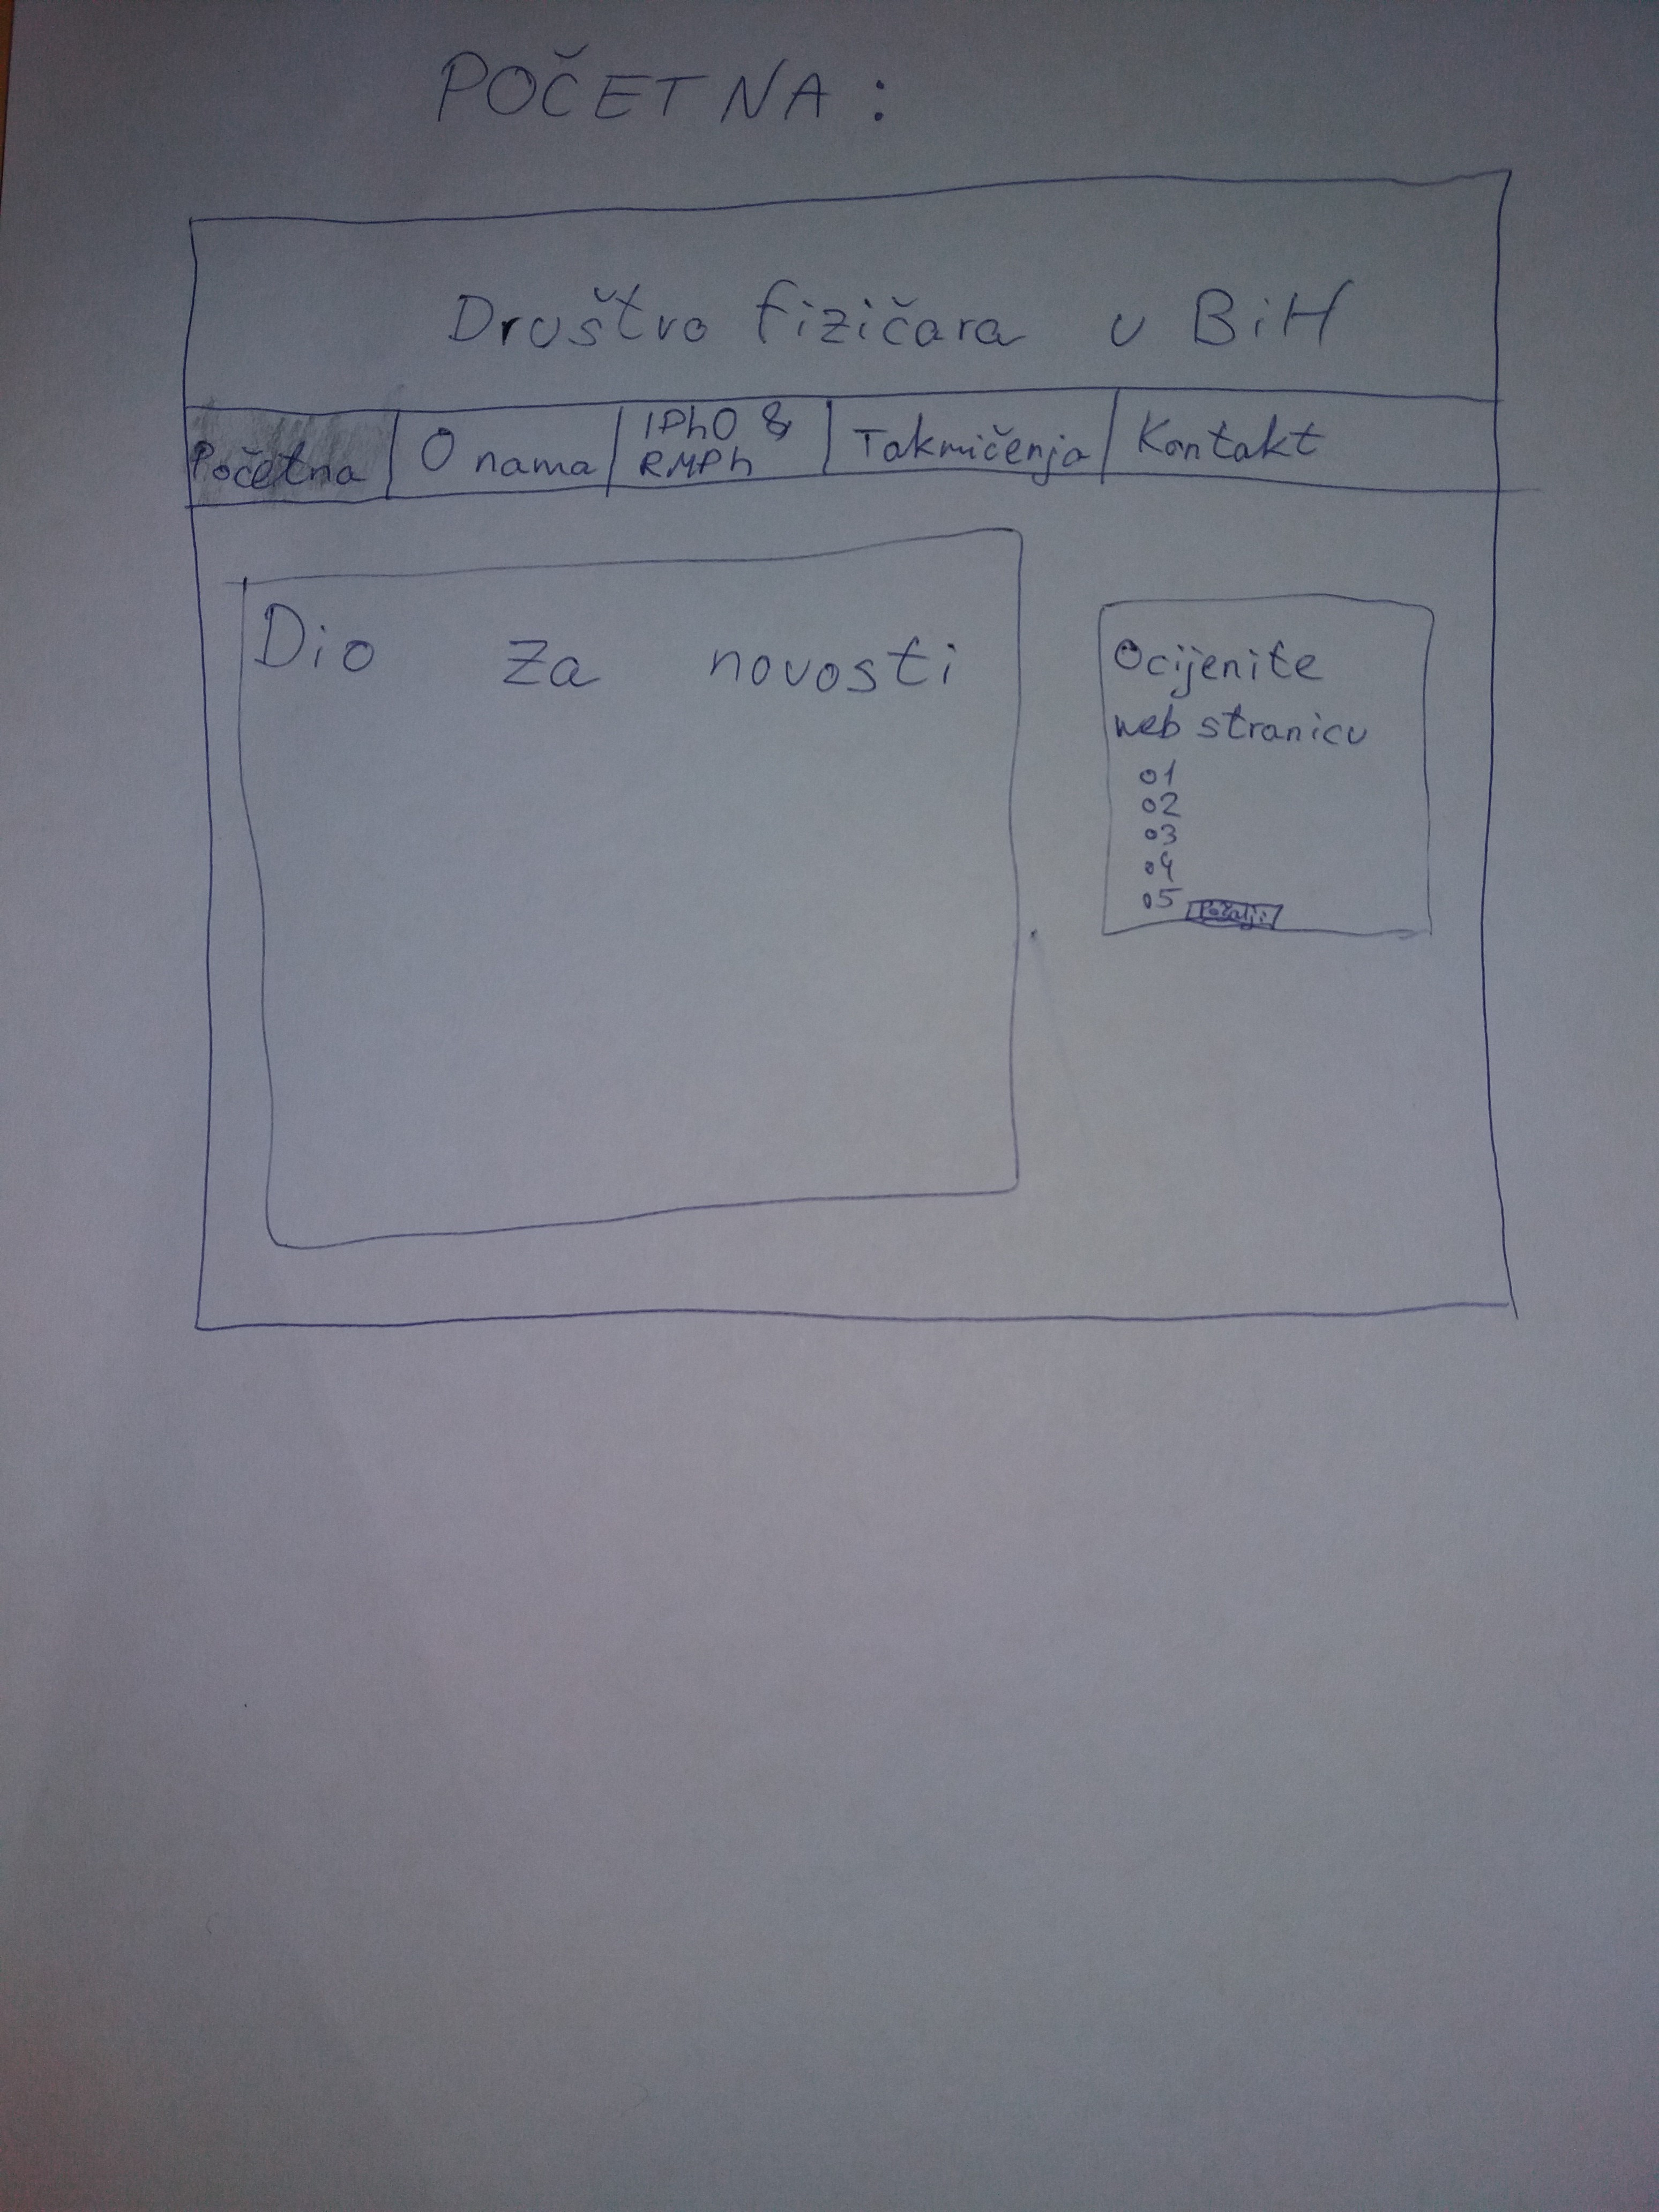 POČETNA:
Društvo fizičara u BiH
Početna
O nama
IPhO &
RMPh
Takmičenja
Kontakt
Dio za novosti
Ocijenite
web stranicu
1
2
3
4
5
Pošalji